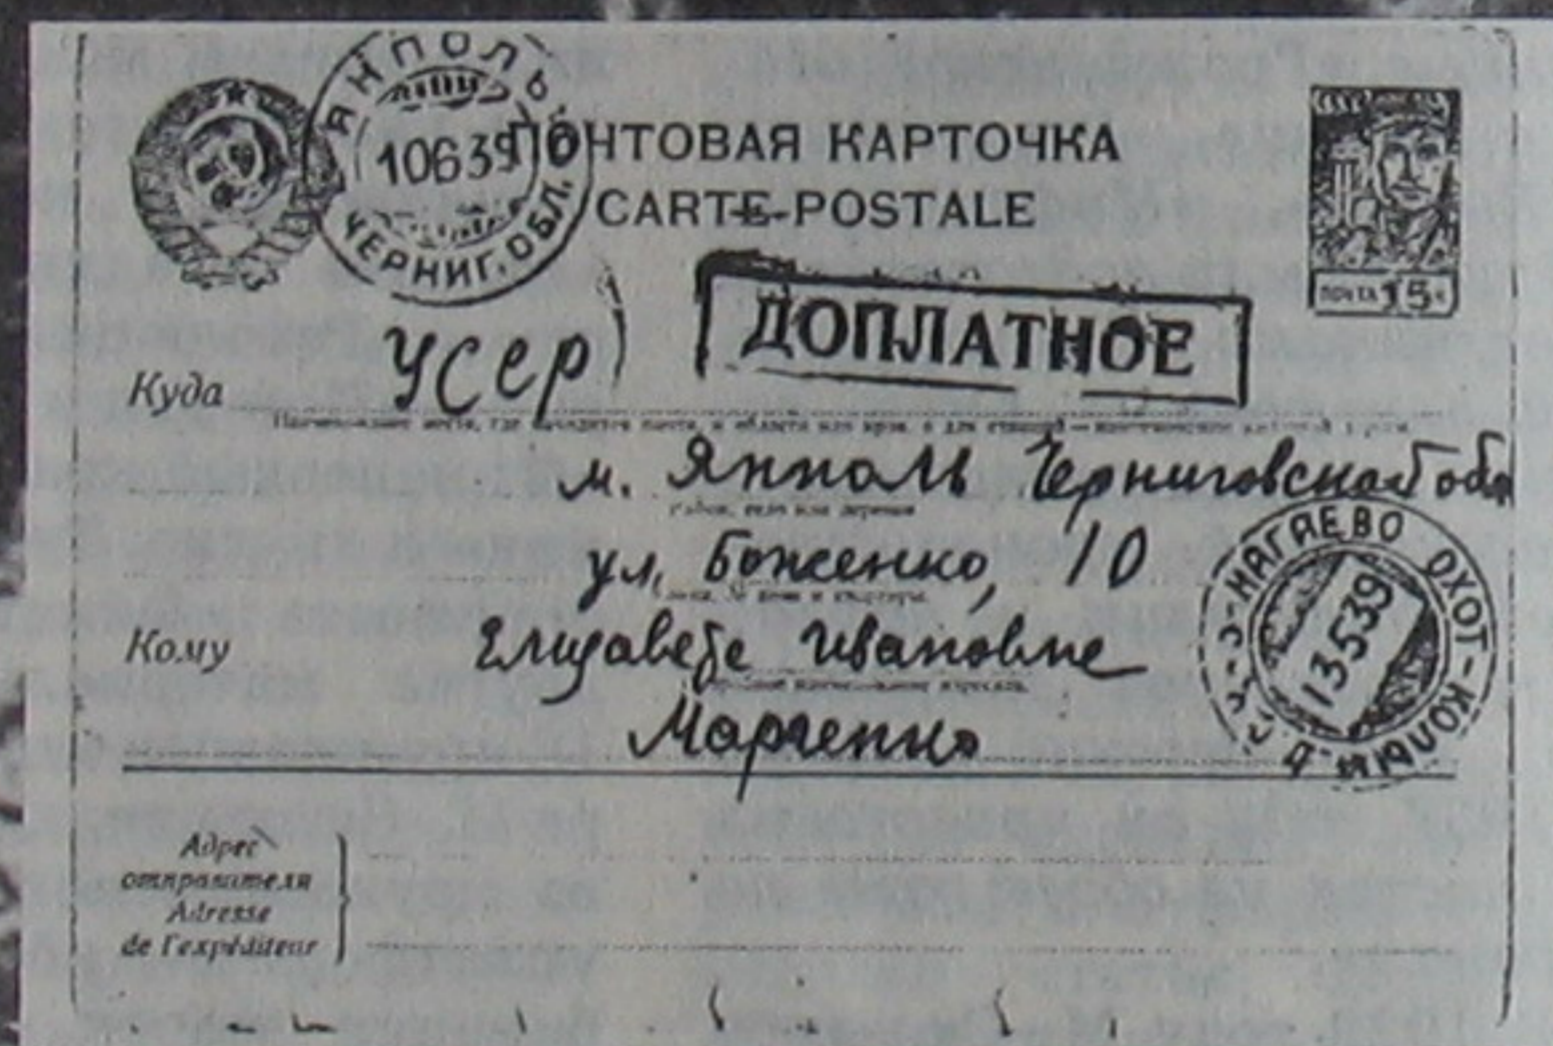 ЯНПОЛЬ
10639
ЧЕРНИГ. ОБЛ.
ПОЧТОВАЯ КАРТОЧКА
CARTE-POSTALE
ПОЧТА 15 К
ДОПЛАТНОЕ
Куда УСЕР
м. Янполь Черниговской обл
ул. Боженко, 10
Кому Елизавете Ивановне
Марченко
НАГАЕВО ОХОТ-КОЛЫМ
13539
Адрес
отправителя
Adresse
de l'expéditeur